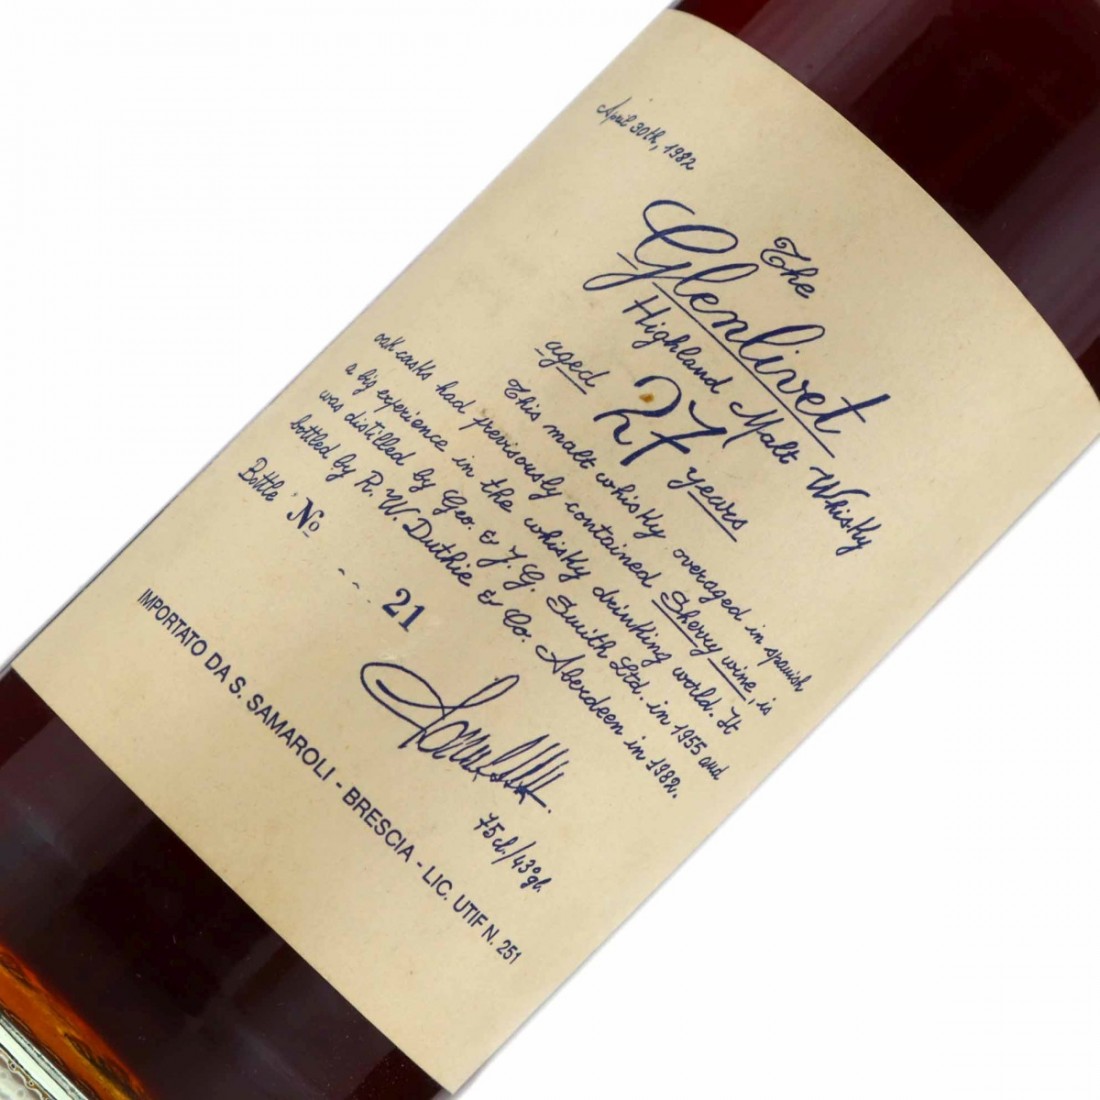 April 30th, 1982
The
Glenlivet
Highland Malt Whisky
aged 27 years
This malt whisky overaged in spanish
oak casks had previsously contained Sherry wine, is
a big experience in the whisky drinking world. It
was distilled by Geo. & J. G. Smith Ltd. in 1955 and
bottled by R. W. Duthie & Co. Aberdeen in 1982.
Bottle No -- 21
75 cl./43° gl.
IMPORTATO DA S. SAMAROLI - BRESCIA - LIC. UTIF N. 251